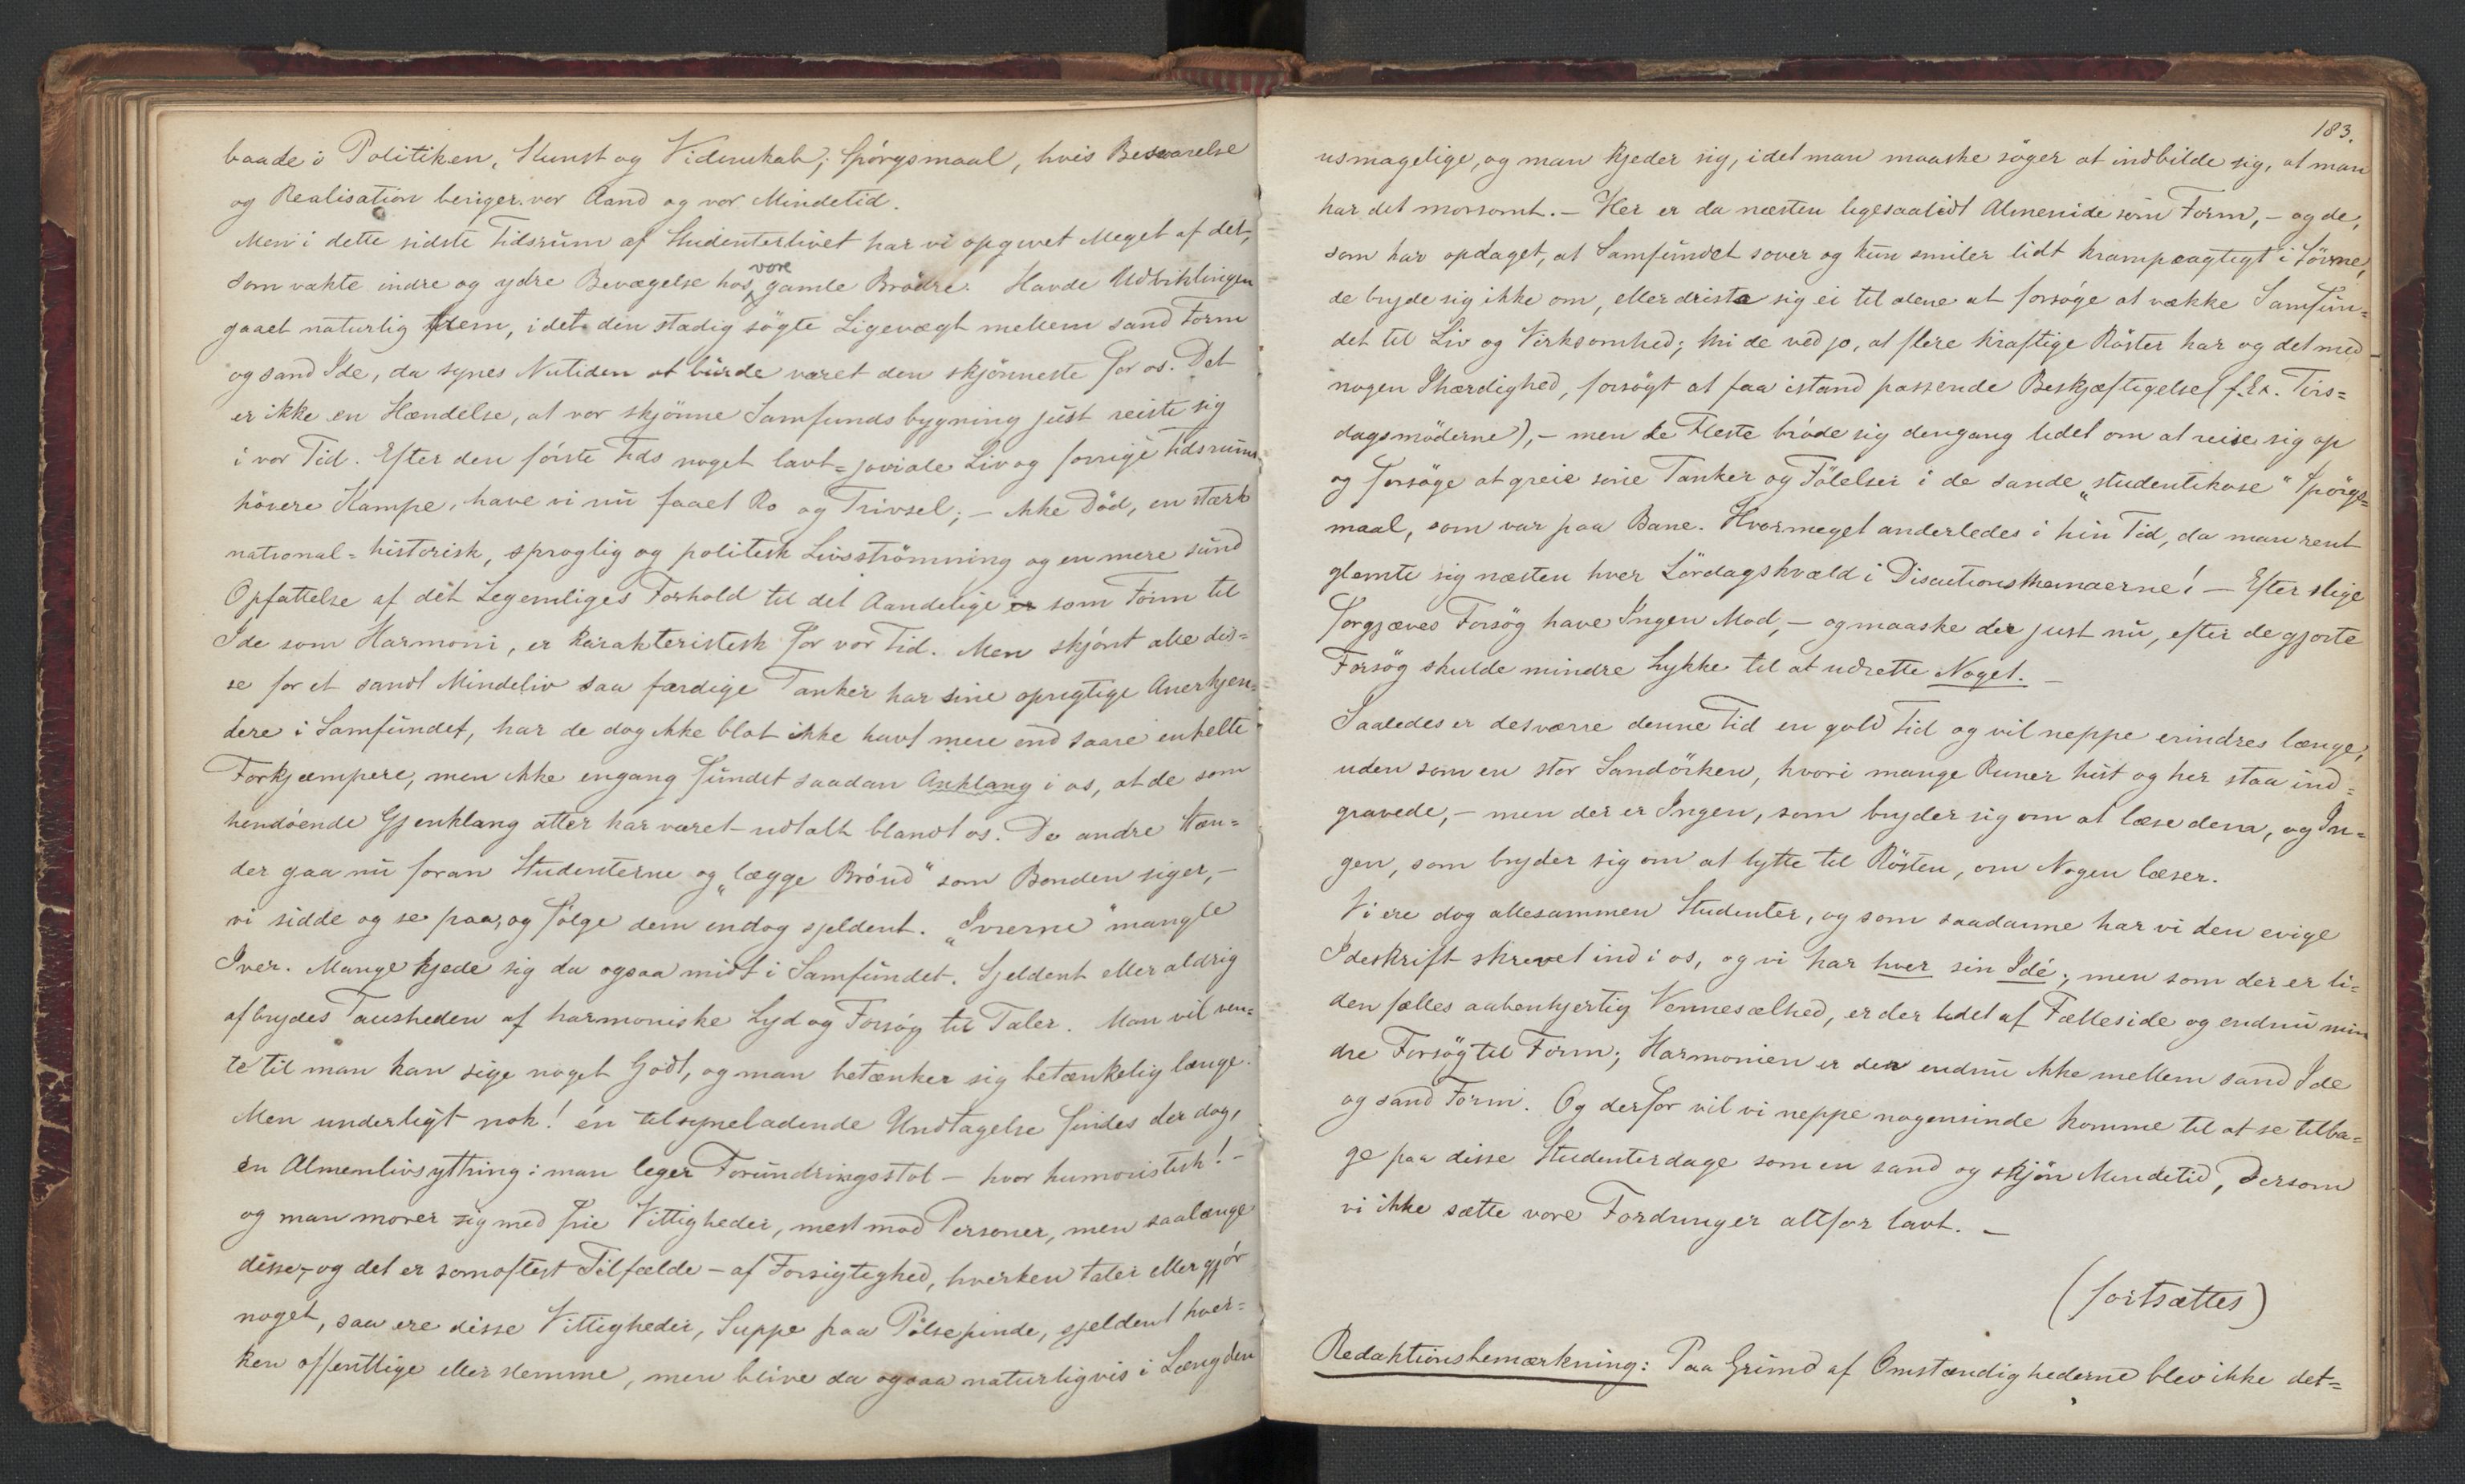 baade i Politiken, Kunst og Videnskab; Spörgsmaal, hvis Besvarelse
og Realisation beriger vor Aand og vor Mindetid.
Men i dette sidste Tidsrum af Studenterlivet har vi opgivet Meget af det,
som vakte indre og ydre Bevægelse hos vore gamle Brödre. Havde Udviklingen
gaaet naturlig frem, idet den stadig sögte Ligevægt mellem sand Form
og sand Ide, da synes Nutiden at burde været den skjönneste for os. Det
er ikke en Hændelse, at vor skjönne Samfundsbygning just reiste sig
i vor Tid. Efter den förste Tids noget lavt=joviale Liv og forrige Tidsrums
höiere Kampe, have vi nu faaet Ro og Trivsel; – ikke Död, en stærk
national=historisk, sproglig og politisk Livsströmning og en mere sund
Opfattelse af det Legemliges Forhold til det Aandelige er som Form til
Ide som Harmoni, er karakteristisk for vor Tid. Men skjönt alle dis=
se for et sandt Mindeliv saa færdige Tanker har sine oprigtige Anerkjen=
dere i Samfundet, har de dog ikke blot ikke havt mere end saare enkelte
Forkjæmpere, men ikke engang fundet saadan Anklang i os, at de som
hendöende Gjenklang atter har været udtalt blandt os. De andre Stæn=
der gaa nu foran Studenterne og „lægge Bröud" som Bonden siger, –
vi sidde og se paa, og fölge dem endog sjeldent. „Ivrerne" mangle
Iver. Mange kjede sig da ogsaa midt i Samfundet. Sjeldent eller aldrig
afbrydes Tausheden af harmoniske Lyd og Forsög til Taler. Man vil ven=
te til man kan sige noget Godt, og man betænker sig betænkelig længe.
Men underligt nok! én tilsyneladende Undtagelse findes der dog,
én Almenlivsyttring: man leger Forundringsstol – hvor humoristisk! –
og man morer sig med frie Vittigheder, mest mod Personer, men saalænge
disse, – og det er somoftest Tilfælde – af Forsigtighed, hverken taler eller gjör
noget, saa ere disse Vittigheder, Suppe paa Pölsepinde, sjeldent hver=
ken offentlige eller slemme, men blive da ogsaa naturligvis i Længden
183.
usmagelige, og man kjeder sig, idet man maaske söger at indbilde sig, at man
har det morsomt. – Her er da næsten ligesaalidt Almenide som Form, – og de,
som har opdaget, at Samfundet sover og kun smiler lidt krampeagtigt i Sövne,
de bryde sig ikke om, eller drista sig ei til alene at forsöge at vække Samfun=
det til Liv og Virksomhed; thi de ved jo, at flere kraftige Röster har og det med
nogen Ihærdighed, forsögt at faa istand passende Beskjæftigelse (f. Ex. Tirs=
dagsmöderne), – men de Fleste bröde sig dengang lidet om at reise sig op
og forsöge at greie sine Tanker og Fölelser i de sande „studentikose" Spörgs=
maal, som var paa Bane. Hvormeget anderledes i hin Tid, da man rent
glemte sig næsten hver Lördagskvæld i Discutionsthemaerne! – Efter slige
forgjæves Forsög have Ingen Mod, – og maaske der just nu, efter de gjorte
Forsög skulde mindre Lykke til at udrette Noget. –
Saaledes er desværre denne Tid en gold Tid og vil neppe erindres længe,
uden som en stor Sandörken, hvori mange Runer hist og her staa ind=
gravede, – men der er Ingen, som bryder sig om at læse dem, og In=
gen, som bryder sig om at lytte til Rösten, om Nogen læser.
Vi ere dog allesammen Studenter, og som saadanne har vi den evige
Ideskrift skrevet ind i os, og vi har hver sin Idé; men som der er li=
den fælles aabenhjertig Vennesælhed, er der lidet af Fælleside og endnu min
dre Forsög til Form; Harmonien er der endnu ikke mellem sand Ide
og sand Form. Og derfor vil vi neppe nogensinde komme til at se tilba=
ge paa disse Studenterdage som en sand og skjön Mindetid, dersom
vi ikke sætte vore Fordringer altfor lavt. –
(fortsættes)
Redaktionsbemærkning: Paa Grund af Omstændighederne blev ikke det=